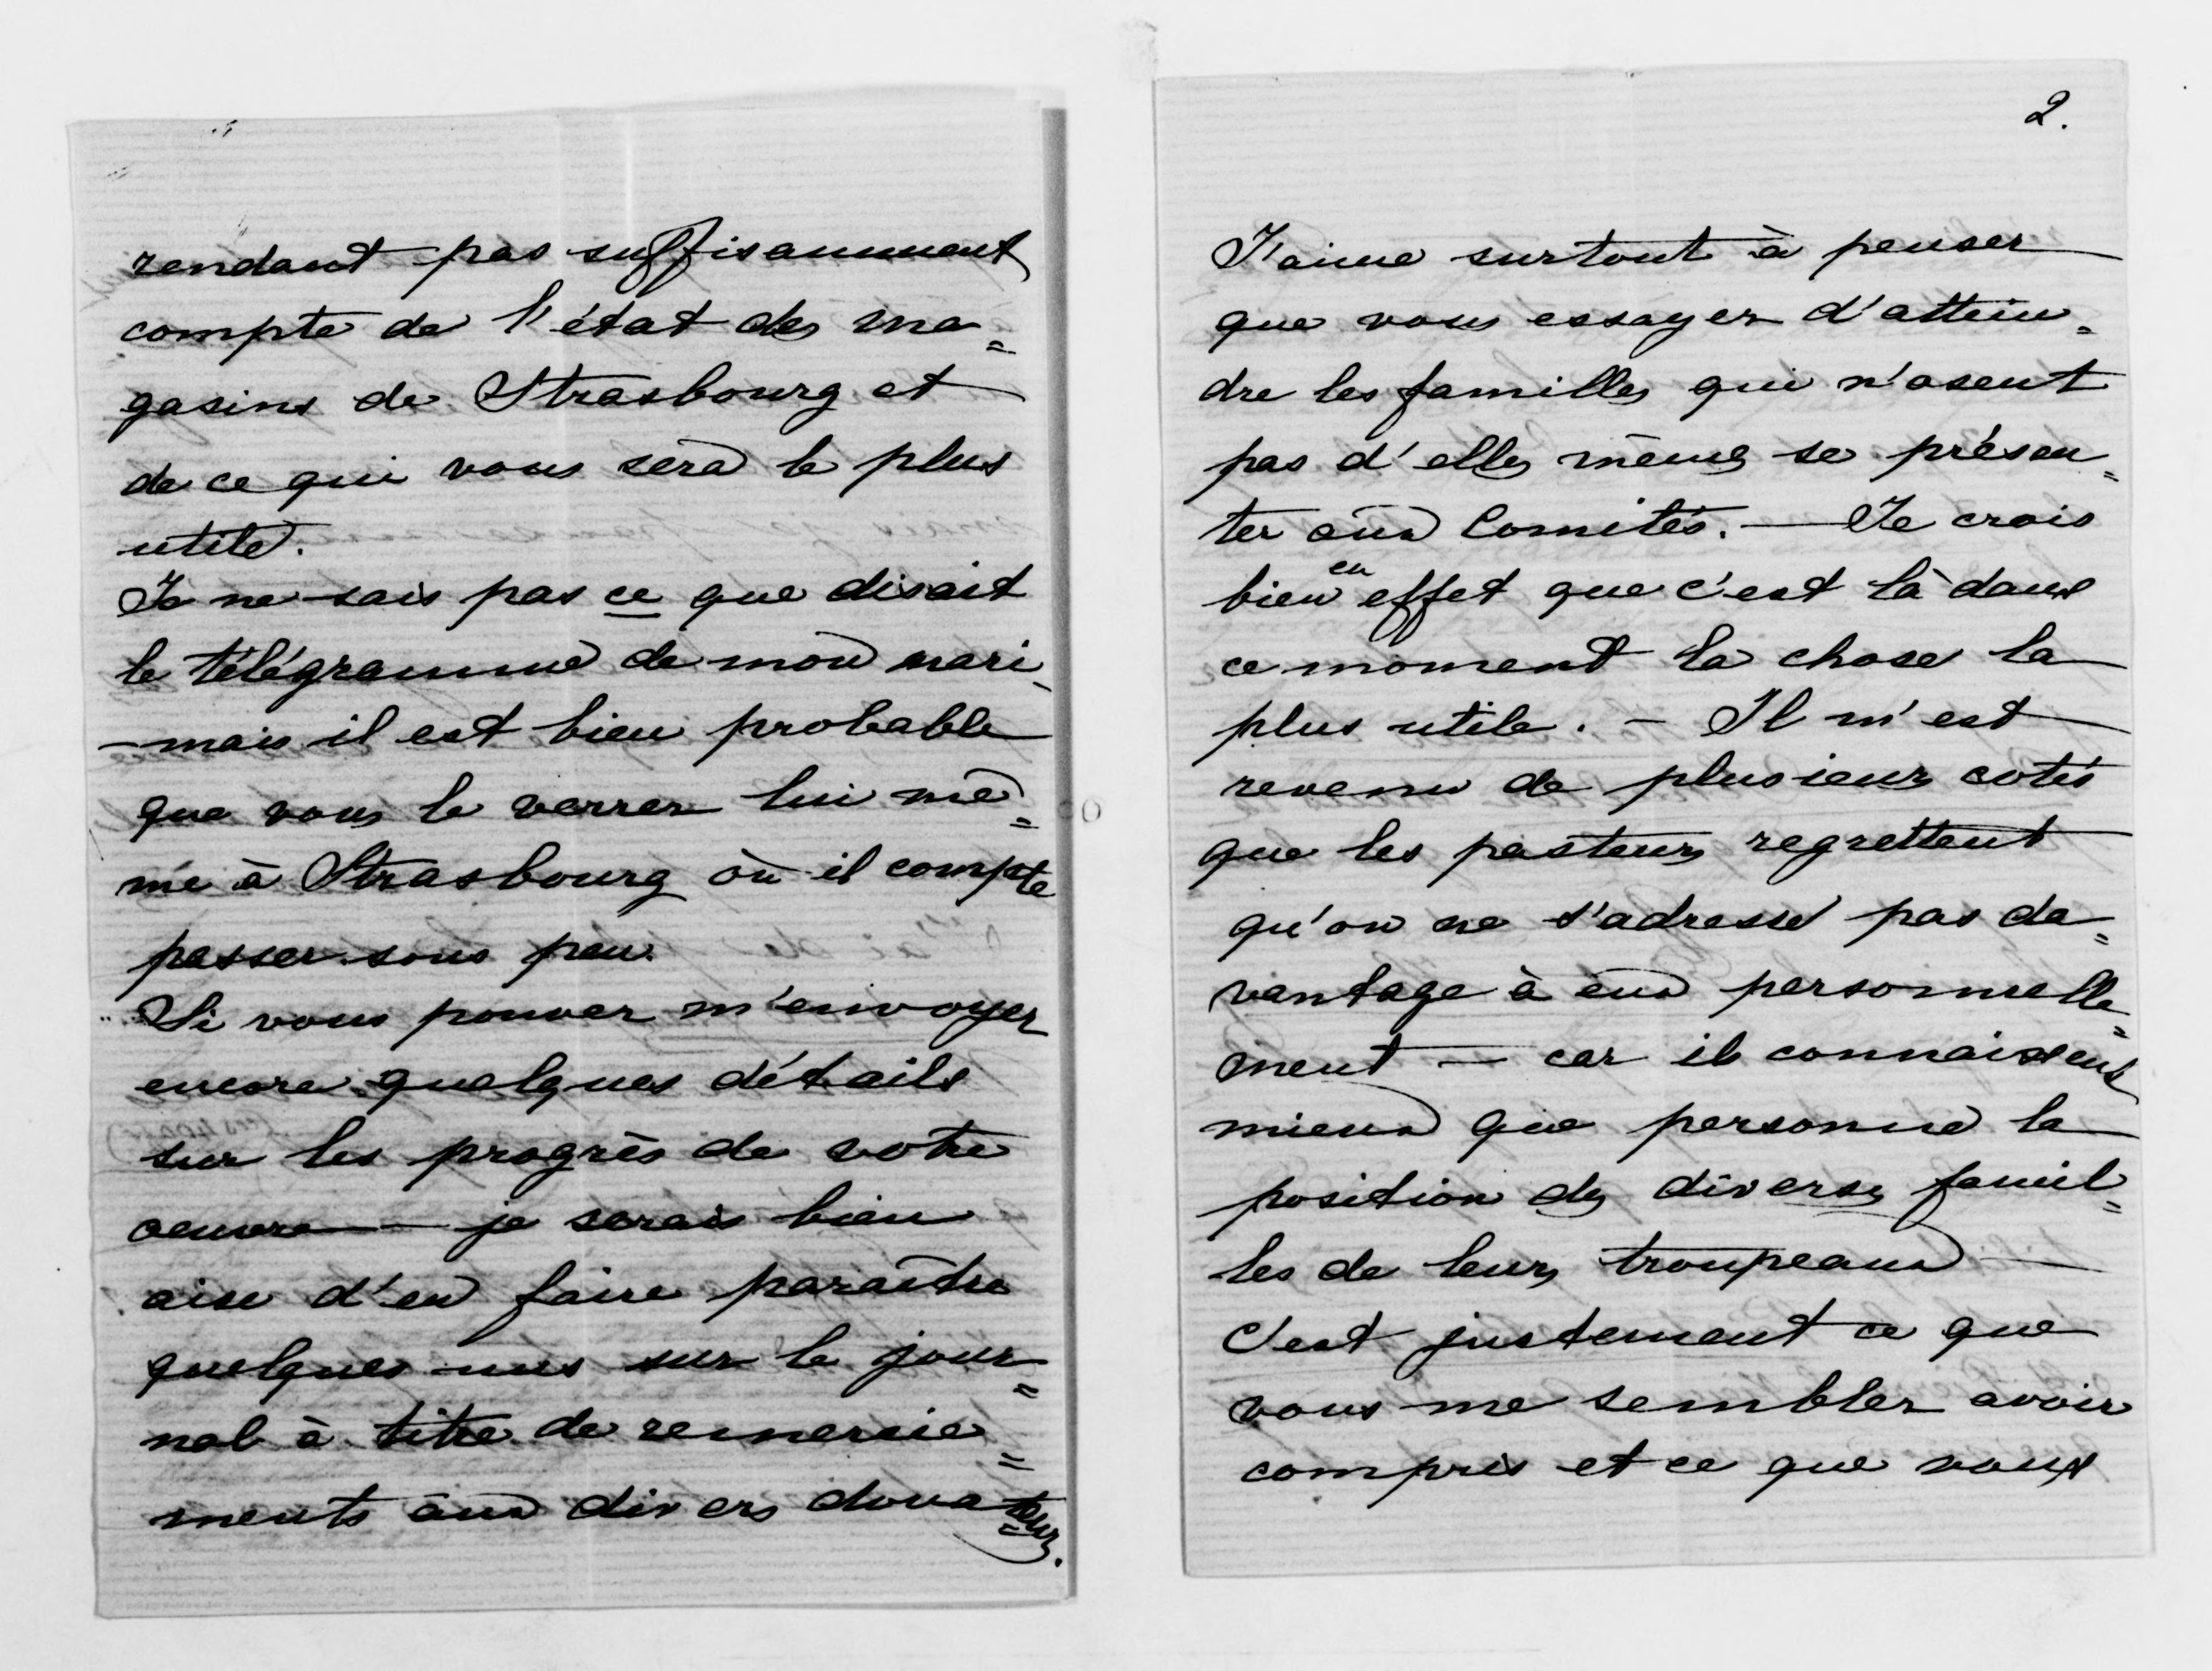 rendant pas suffisamment
compte de l'état des ma=
gasins de Strasbourg et
de ce qui vous sera le plus
utile.
Je ne sais pas ce que disait
le télégramme de mon mari
- mais il est bien probable
que vous le verrez lui mê=
me à Strasbourg où il compte
passer sous peu.
Si vous pouvez m'envoyer
encore quelques détails
sur les progrès de votre
oeuvre — je serais bien
aise d'en faire paraître
quelques-uns sur le jour=
nal à titre de remercie=
ments aux divers dona=teurs.
2.
J'aime surtout à penser
que vous essayez d'attein=
dre les familles qui n'osent
pas d'elles mêmes se présen=
ter aux Comités. — Je crois
bien en effet que c'est là dans
ce moment la chose la
plus utile. — Il m'est
revenu de plusieurs cotés
que les pasteurs regrettent
qu'on ne s'adresse pas da=
vantage à eux personnelle=
ment — car ils connaissent
mieux que personne la
position des diverses famil=
les de leurs troupeaux —
C'est justement ce que
vous me semblez avoir
compris et ce que vous